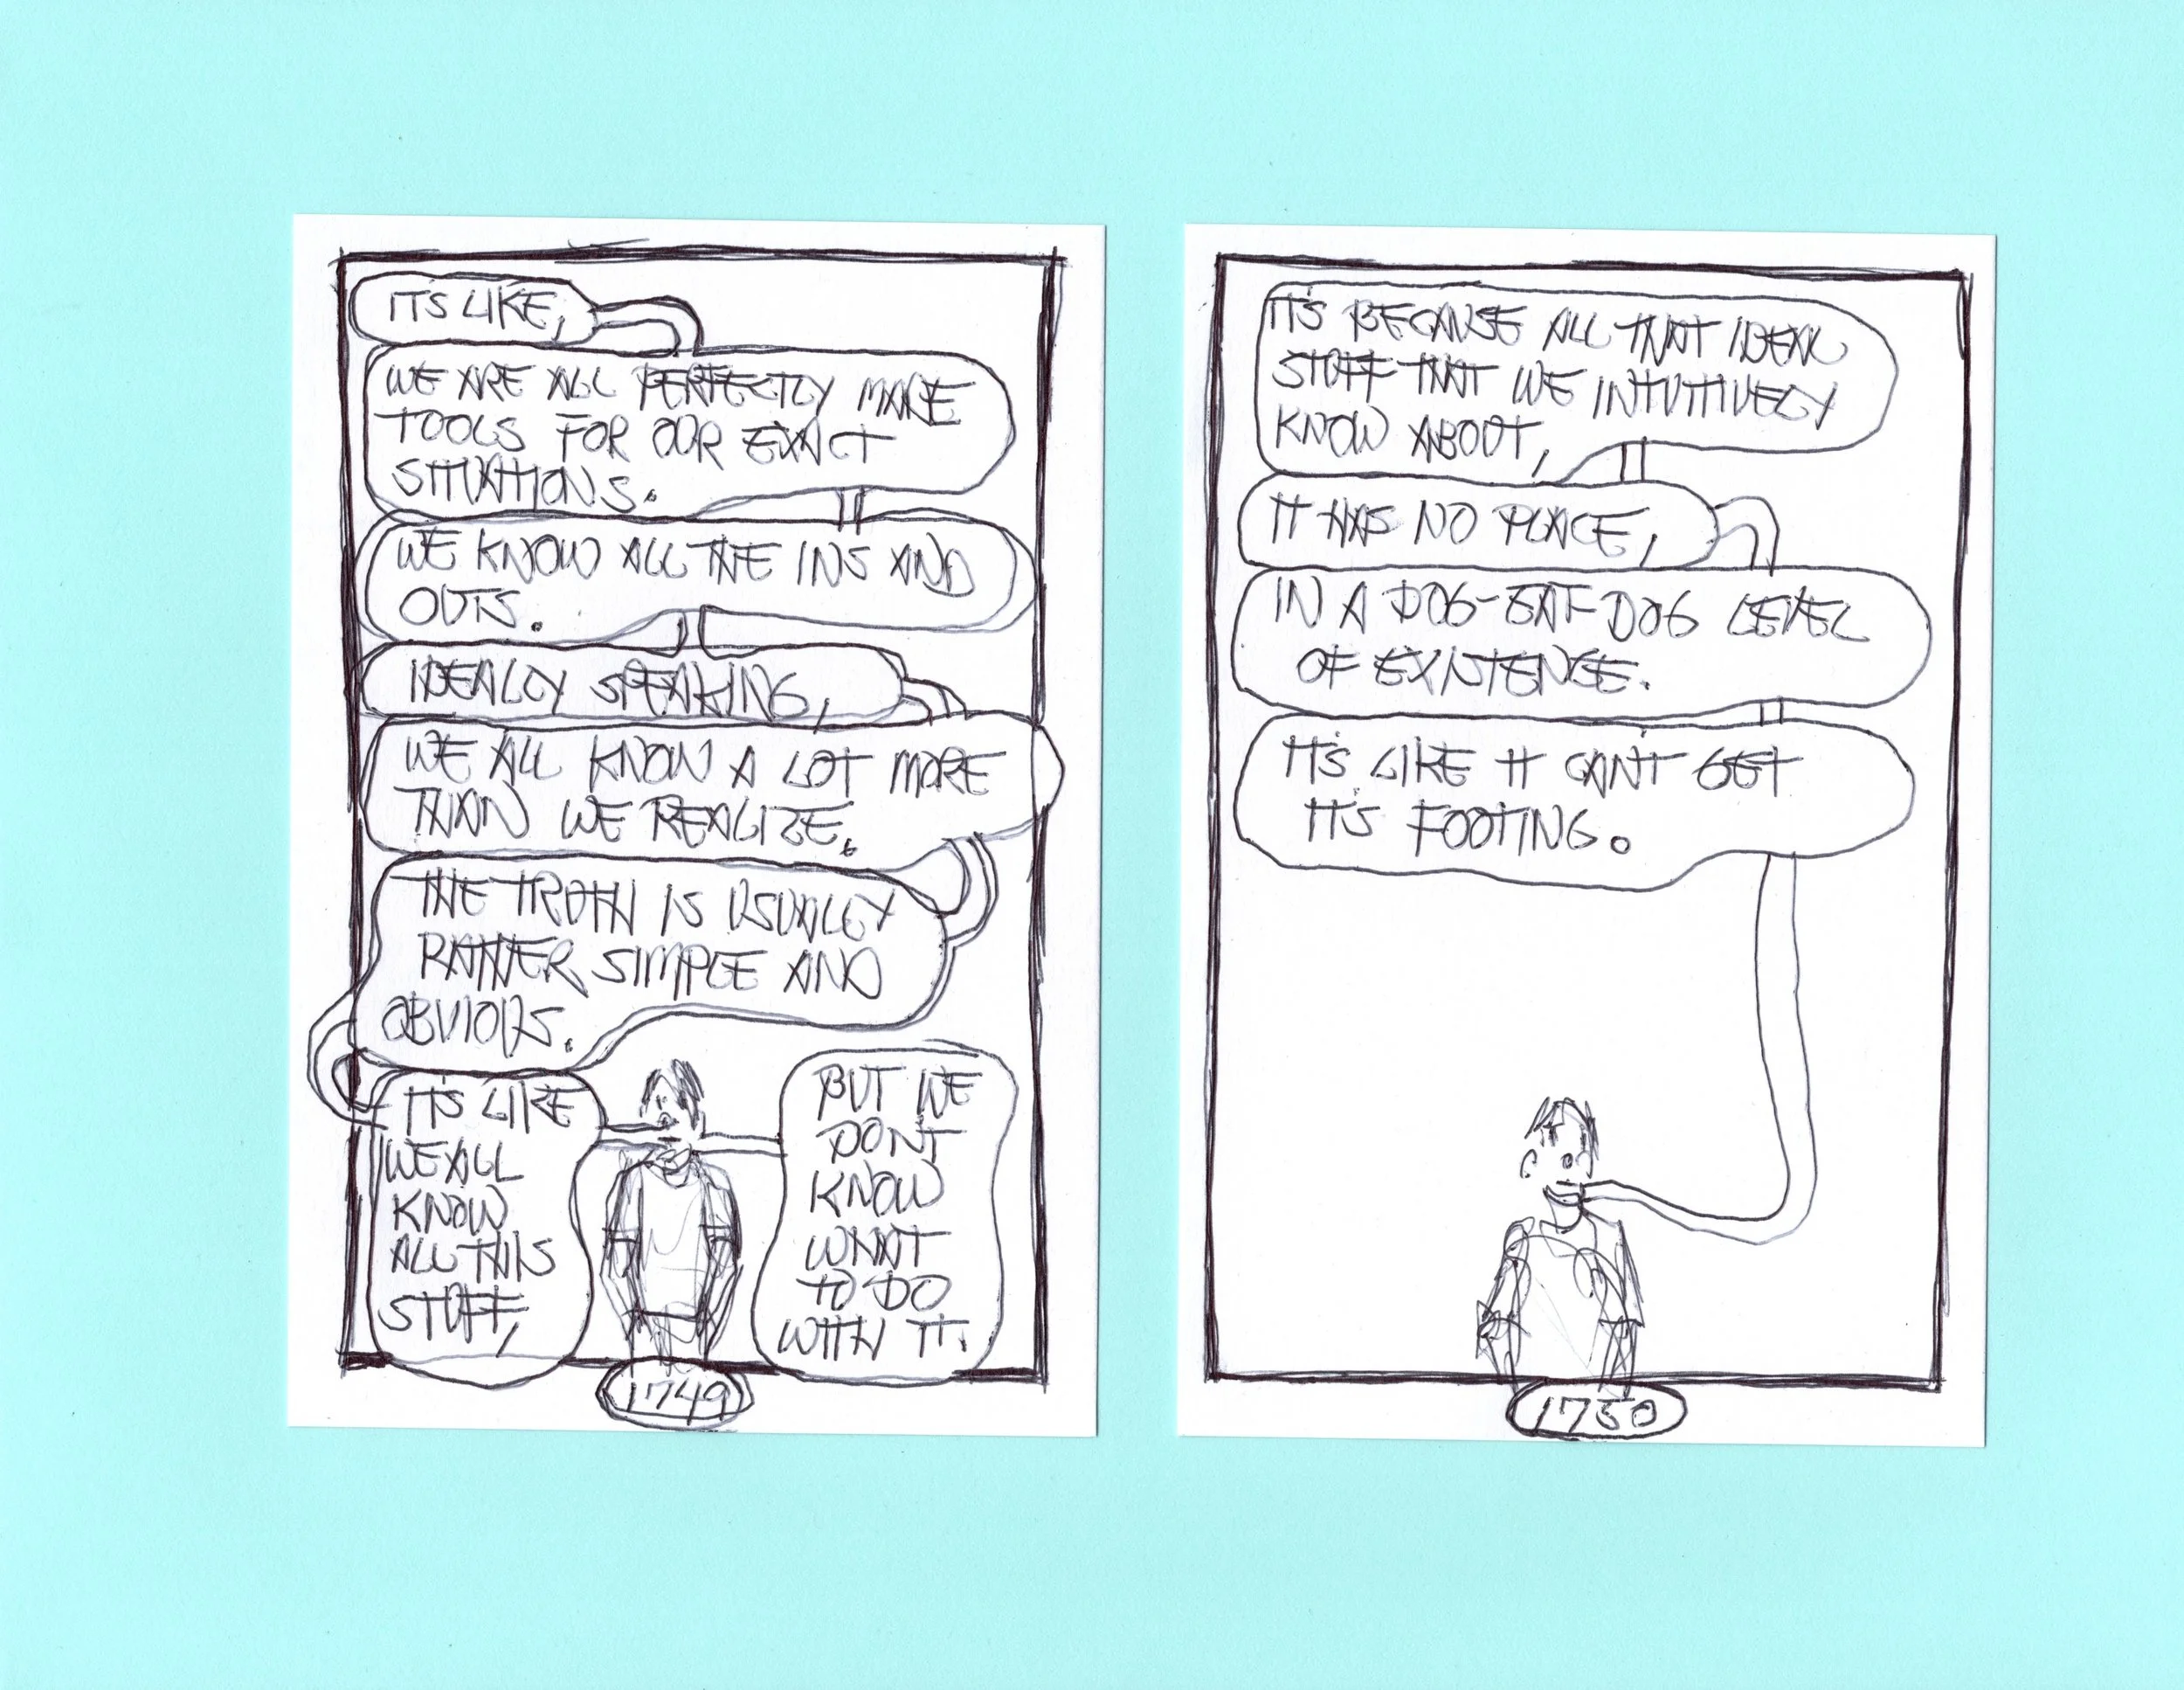 IT'S LIKE,
WE ARE ALL PERFECTLY MADE
TOOLS FOR OUR EXACT
SITUATIONS.
WE KNOW ALL THE INS AND
OUTS.
IDEALLY SPEAKING,
WE ALL KNOW A LOT MORE
THAN WE REALIZE.
THE TRUTH IS USUALLY
RATHER SIMPLE AND
OBVIOUS.
IT'S LIKE
WE ALL
KNOW
ALL THIS
STUFF,
BUT WE
DON'T
KNOW
WHAT
TO DO
WITH IT.
1749
IT'S BECAUSE ALL THAT IDEAL
STUFF THAT WE INTUITIVELY
KNOW ABOUT,
IT HAS NO PLACE,
IN A DOG-EAT-DOG LEVEL
OF EXISTENCE.
IT'S LIKE IT CAN'T GET
IT'S FOOTING.
1750